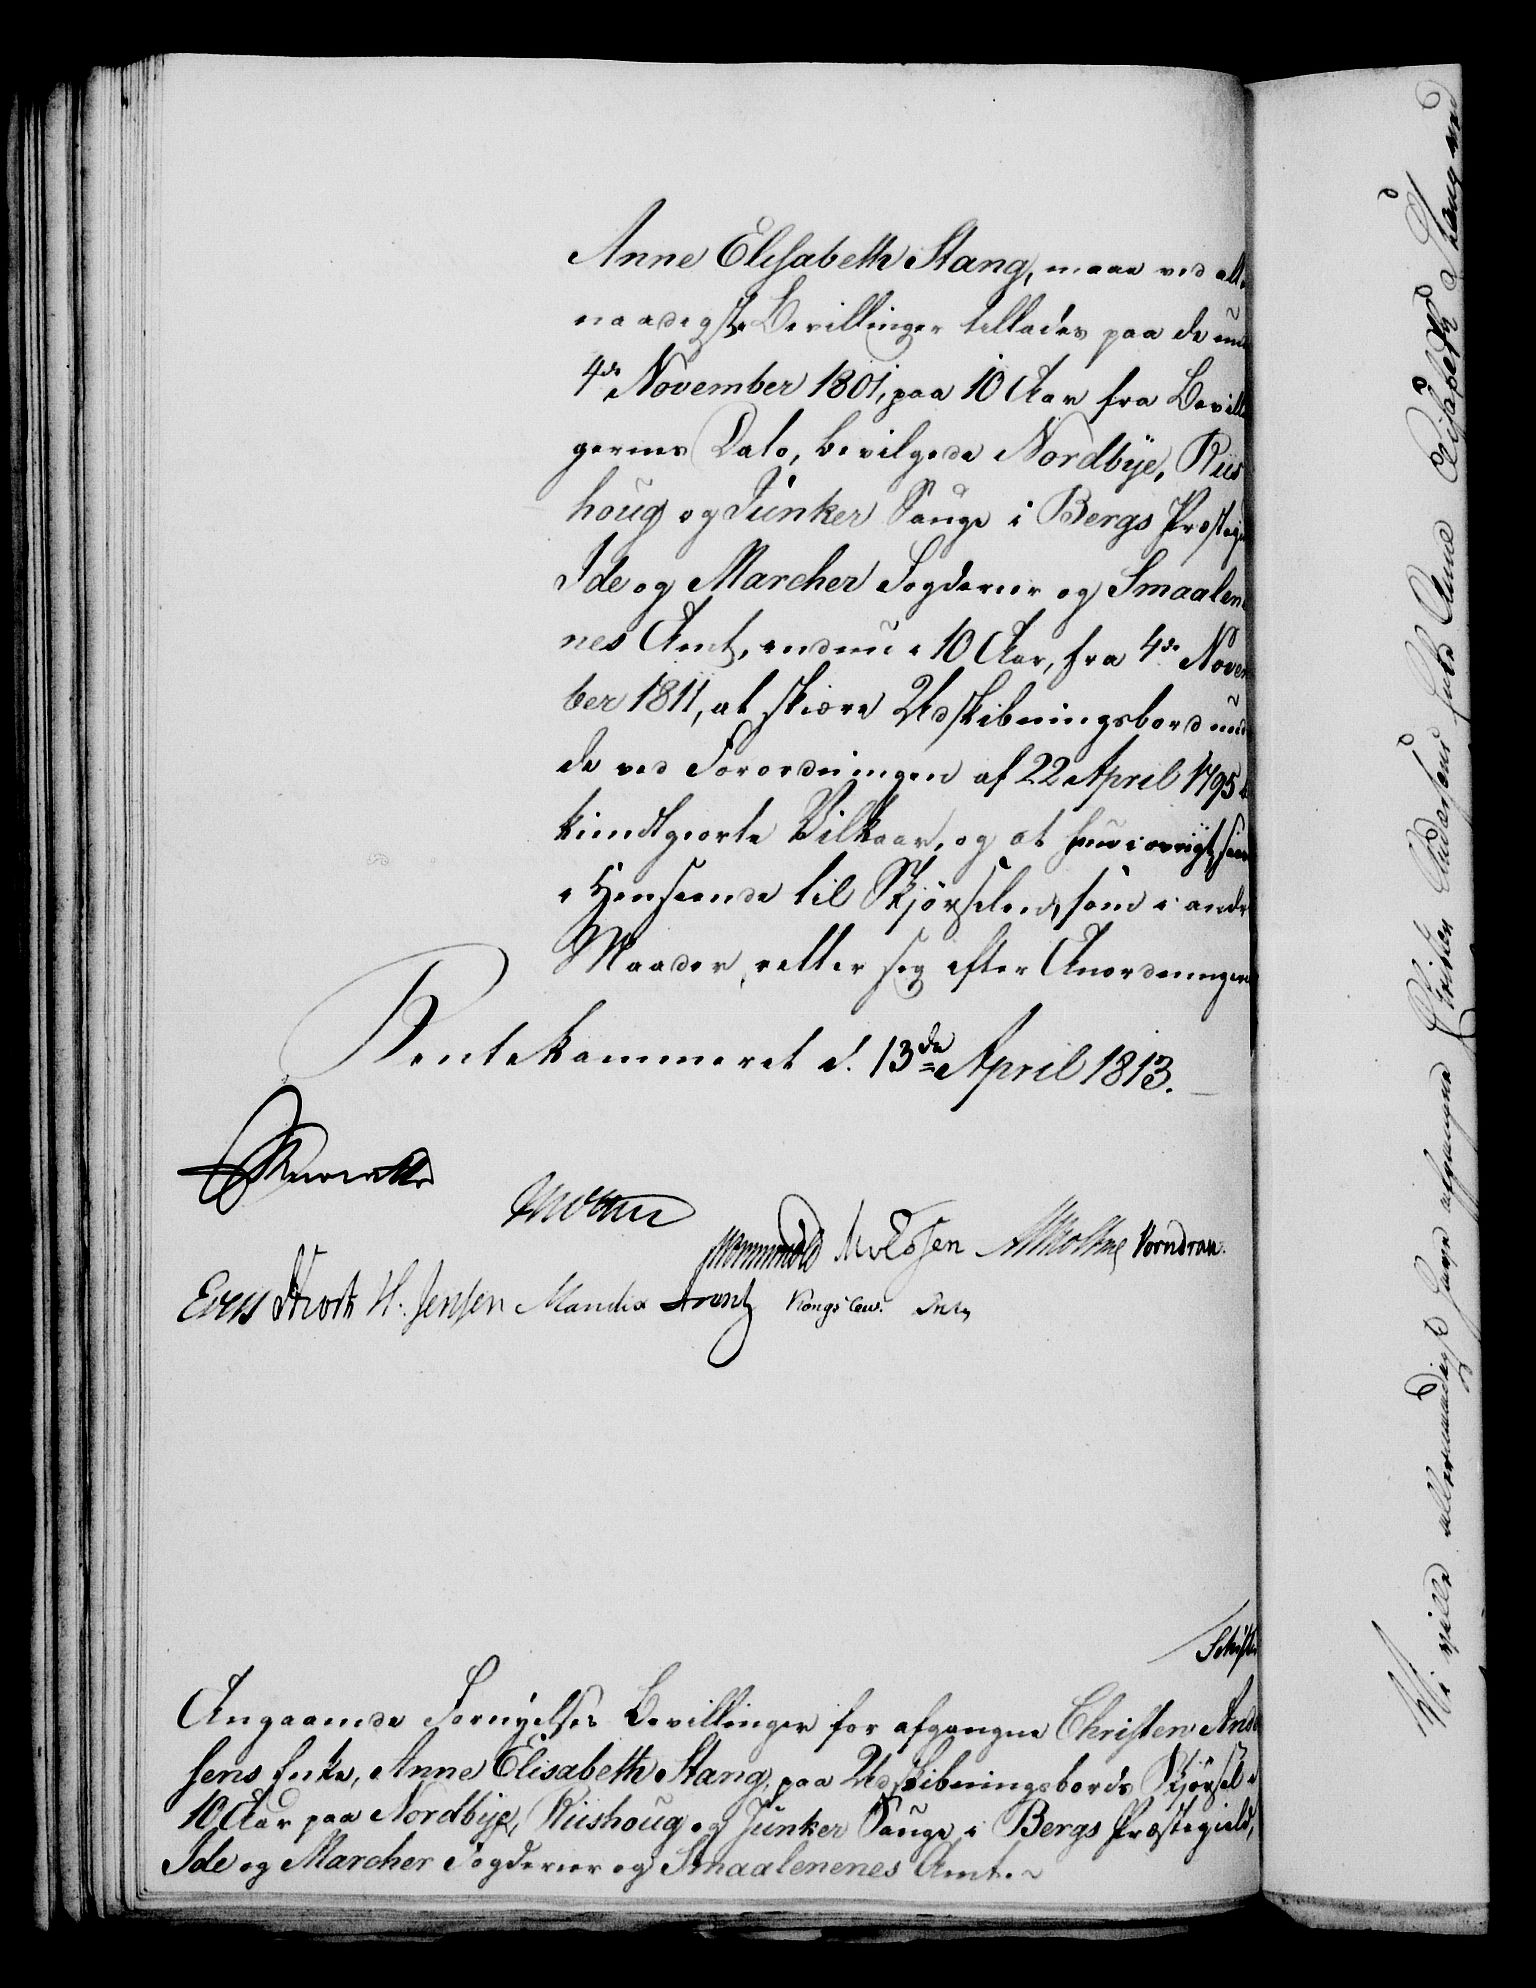 Anne Elisabeth Stang, maae ved aller
naadigste Bevillinger tillades paa de under
4de November 1801, paa 10 Aar fra Bevillin
gernes Dato, bevilgede Nordbÿe, Riis
houg og Junker Sauge i Bergs Præstegi
Ide og Marcher Fogderier og Smaalene
nes Amt, endnu i 10 Aar, fra 4de Novem
ber 1811, at skiære Udskibningsbord und
de ved Forordningen af 22 April 1795 be
kiendtgiorte Vilkaar, og at hun i øvrigt saav
i Henseende til Skjørselen, som i andre
Maader, retter sig efter Anordningerne
Rentekammeret d. 13de April 1813.
Monrad Molbech Vorndran.
H. Jensen Mandix Arentz Kongslew.
Schiøtt
Angaaende Fornyelses Bevillinger for afgangne Christen Ander
sens Enke, Anne Elisabeth Stang, paa Udskibningsbords Skjørsel i
10 Aar paa Nordbÿe, Riishoug og Junker Sauge i Bergs Præstegield,
Ide og Marcher Fogderier og Smaalenenes Amt.
Vi ville allernaadigst have afgangne Christen Andersens Enke Anne Elisabeth Stang ved